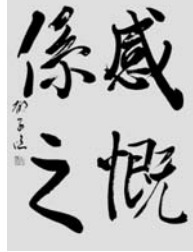 感慨
係之